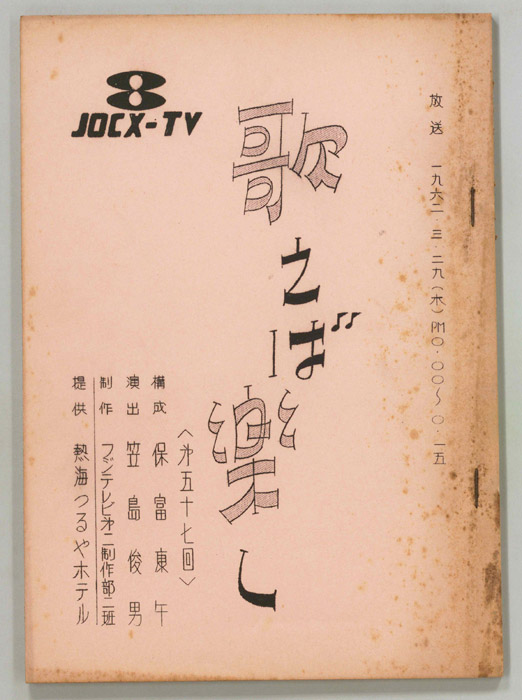 放送 一九六二・三・二九(木)PM〇・〇〇〜〇・一五
8
JOCX-TV
歌えば楽し
〈第五十七回〉
構成 保富康午
演出 笠島俊男
制作 フジテレビ第二制作部二班
提供 熱海つるやホテル